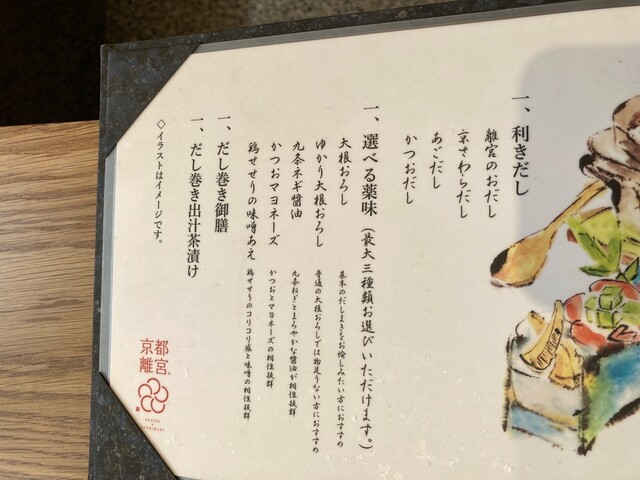 一、利きだし
離宮のおだし
京さわらだし
あごだし
かつおだし
一、選べる薬味（最大三種類お選びいただけます。）
大根おろし 基本のだしまきをお愉しみたい方におすすめ
ゆかり大根おろし 普通の大根おろしでは物足りない方におすすめ
九条ネギ醬油 九条ねぎとまろやかな醬油が相性抜群
かつおマヨネーズ かつおとマヨネーズの相性抜群
鶏せせりの味噌あえ 鶏せせりのコリコリ感と味噌の相性抜群
一、だし巻き御膳
一、だし巻き出汁茶漬け
◇イラストはイメージです。
京都離宮